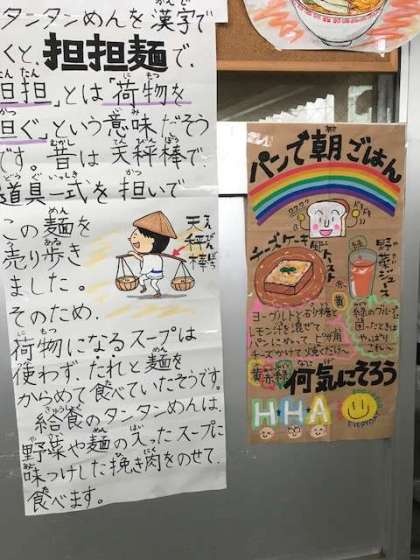 タンタンめんを漢字で
くと、担担麺で、
担担」とは「荷物を
担ぐ」という意味だそう
です。昔は天秤棒で、
道具一式を担いで
この麺を
売り歩き
ました。
そのため、
荷物になるスープは
使わず、たれと麺を
からめて食べていたそうです。
給食のタンタンめんは、
野菜や麺の入ったスープに
味つけした挽き肉をのせて、
食べます。
天秤棒
パンで朝ごはん
チーズケーキ風トースト
野菜ジュース
ヨーグルトと砂糖と
レモン汁を混ぜて
パンにぬって ピザ用
チーズかけて焼くだけ〜
何気にそろう
HHA